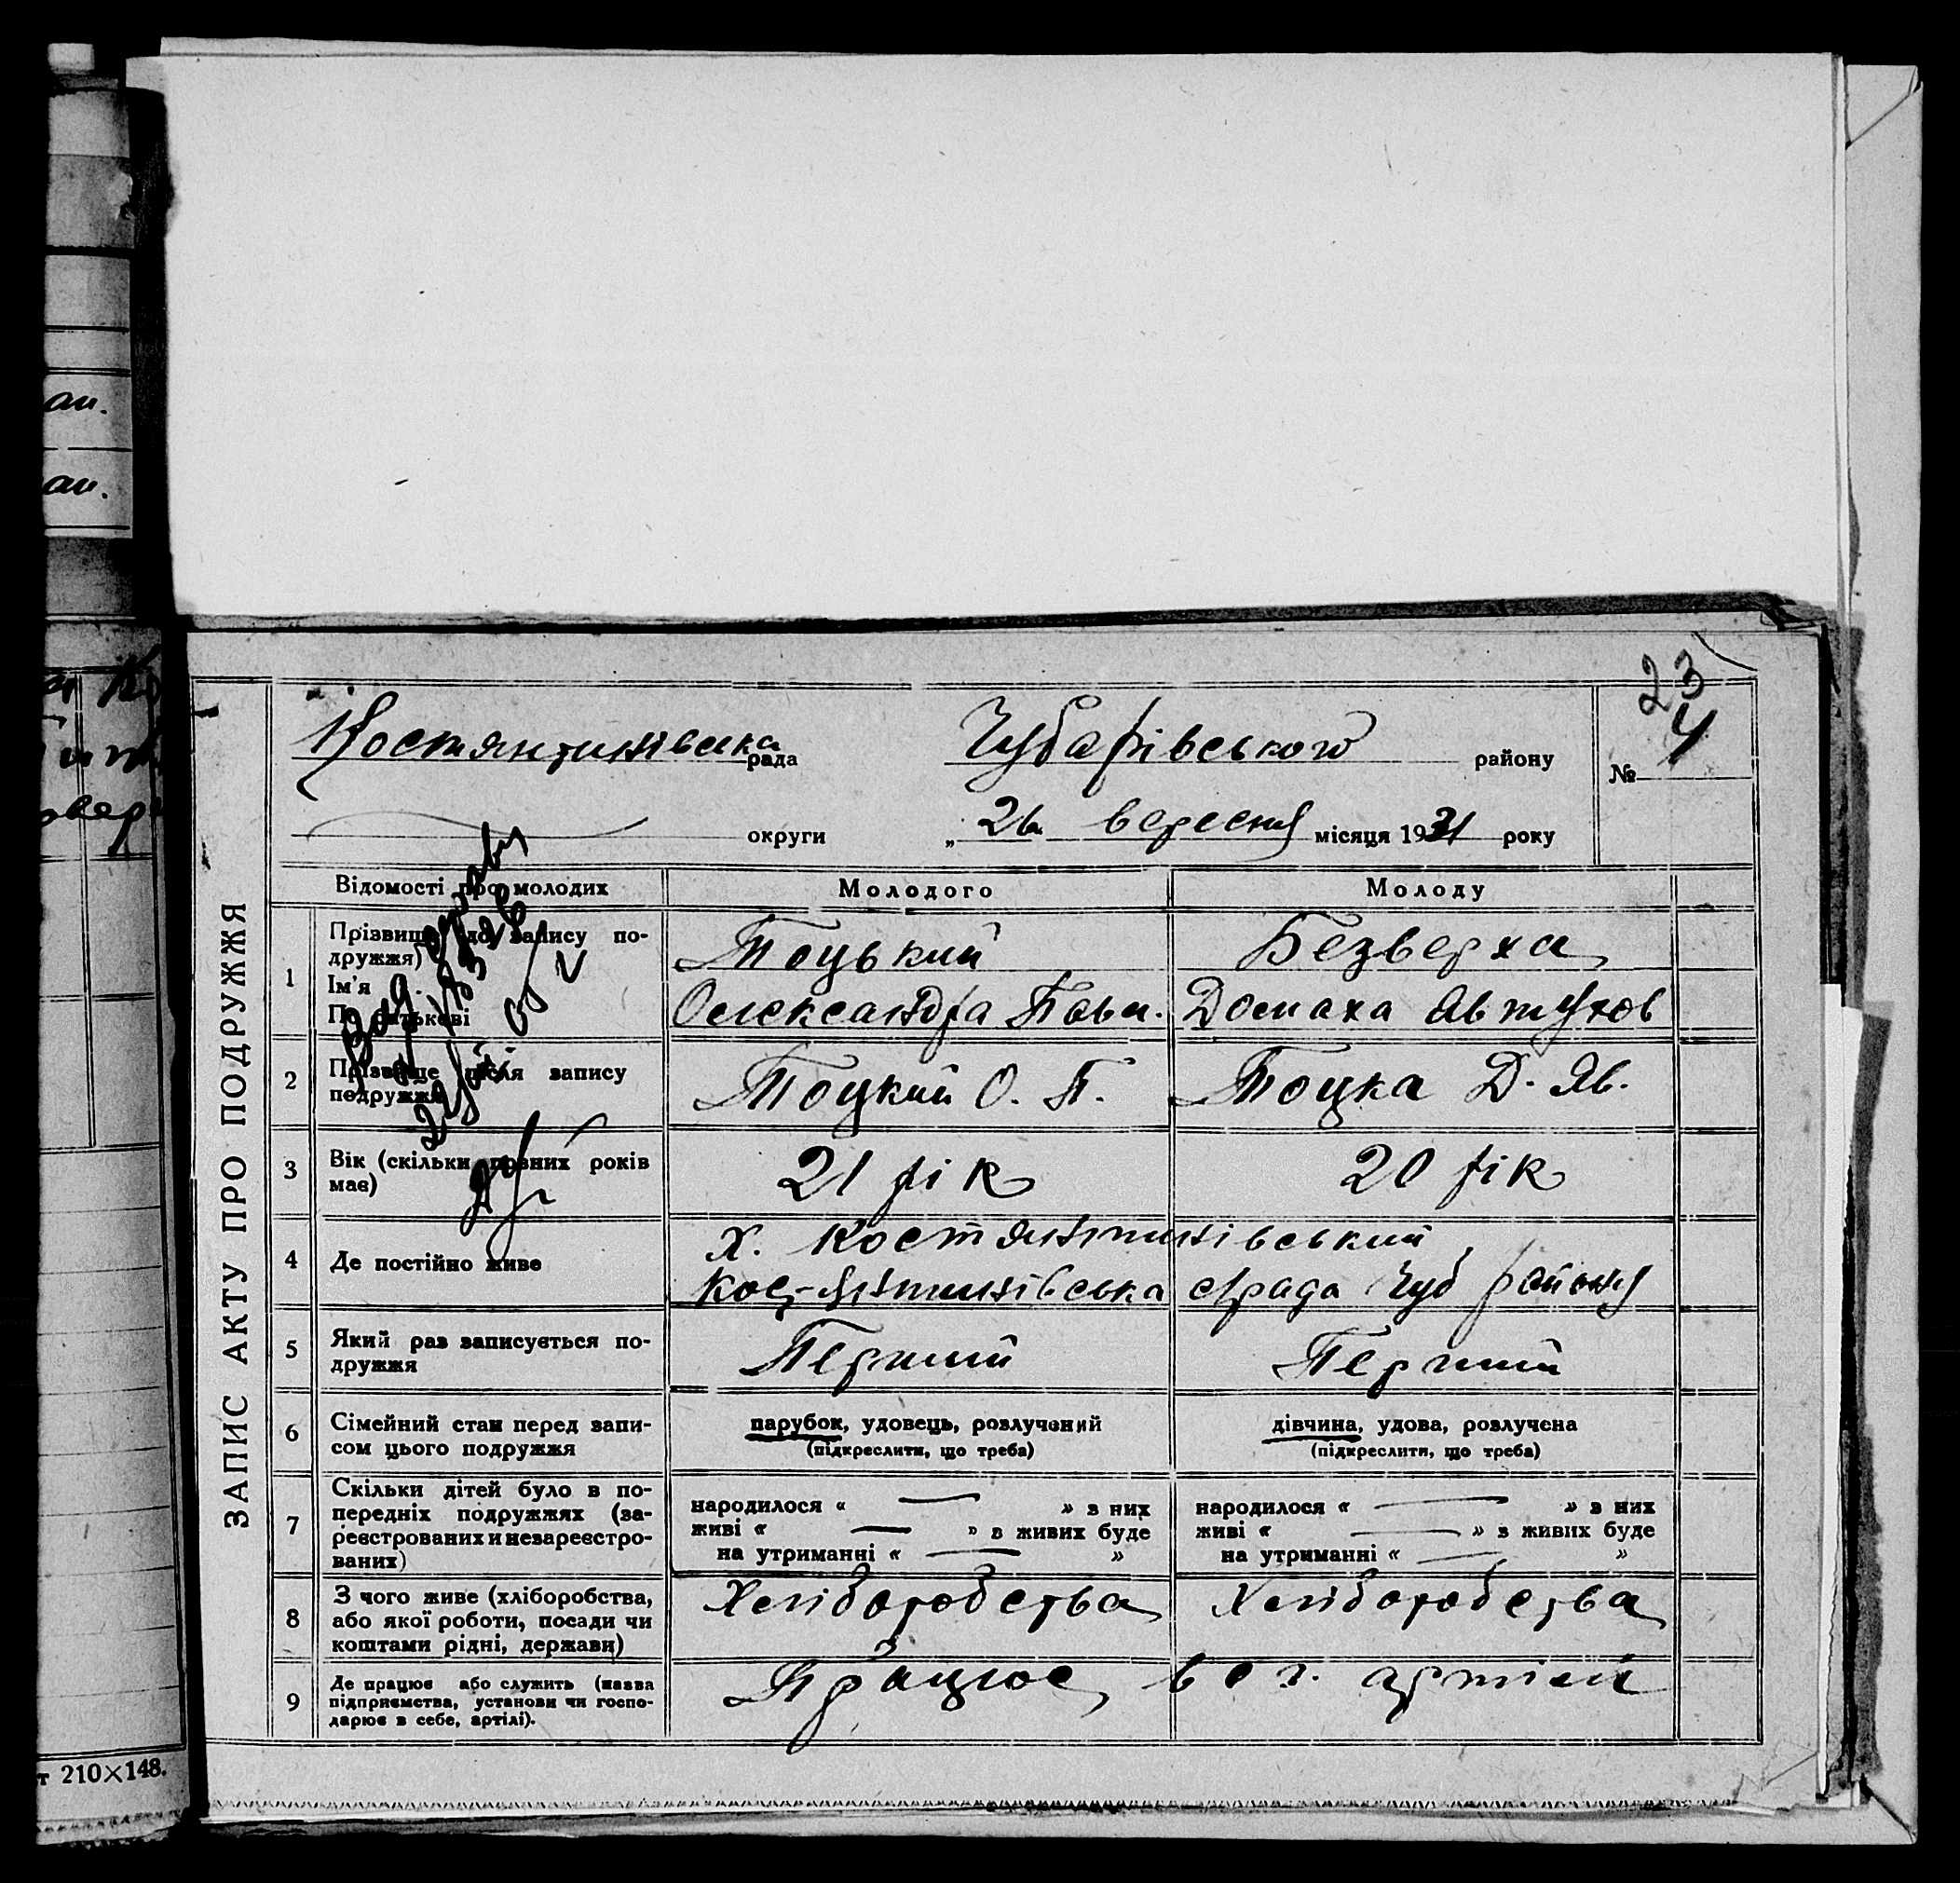 ан.
ан.
т 210×148.
23
ЗАПИС АКТУ ПРО ПОДРУЖЖЯ
Костянтинівська рада Чубарівського району № 4
округи „ 26 вересня місяця 1931 року
Відомості про молодих Молодого Молоду
1 Прізвище (до запису подружжя) Ім'я По батькові
Тоцький Безверха
Олександра Павл. Домаха Явтухов
2 Прізвище після запису подружжя Тоцкий О. П. Тоцка Д. Яв.
3 Вік (скільки повних років має) 21 рік 20 рік
4 Де постійно живе х. Костянтинівський,
Кос-янтинівська срада Чуб району
5 Який раз записується подружжя Перший Перший
6 Сімейний стан перед записом цього подружжя парубок, удовець, розлучений дівчина, удова, розлучена
(підкреслити, що треба) (підкреслити, що треба)
7 Скільки дітей було в попередніх подружжях (зареєстрованих и незареєстрованих)
народилося « — » з них народилося « — » з них
живі « — » з живих буде живі « — » з живих буде
на утриманні « — » на утриманні « — »
8 З чого живе (хліборобства, або якої роботи, посади чи коштами рідні, держави) Хліборобства Хліборобства
9 Де працює або служить (назва підприємства, установи чи господарює в себе, артілі). Працює в с г. артілі